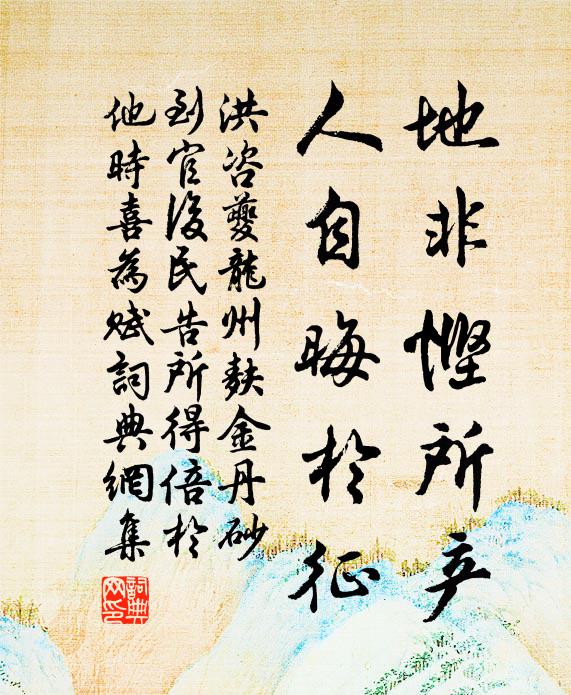 地非慳所產
人自晦於征
洪咨夔龍州麩金丹砂
到官後民告所得倍於
他時喜為賦詞典網集
詞典網印